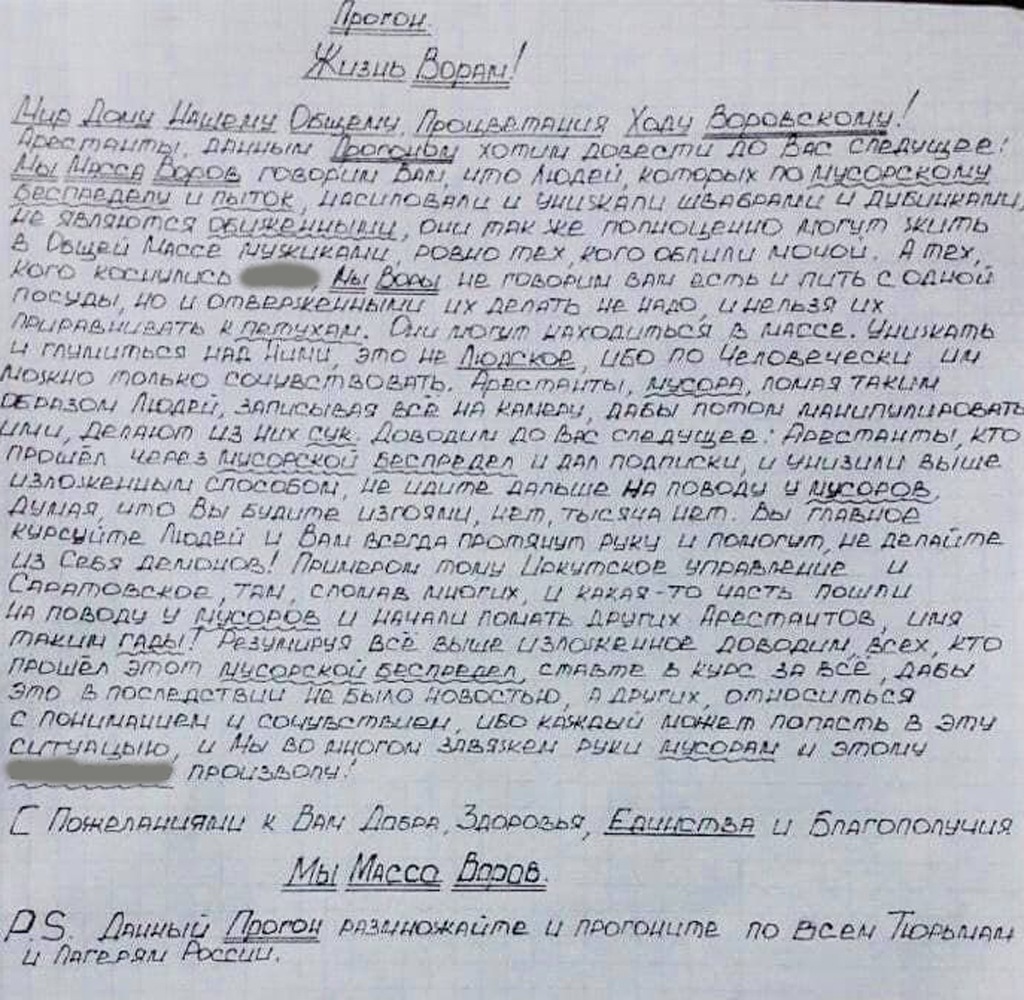 Прогон.
Жизнь Ворам!
Мир Дому Нашему Общему, Процветания Ходу Воровскому!
Арестанты, данным Прогоном хотим довести до Вас следущее:
Мы Масса Воров говорим Вам, что Людей, которых по мусорскому
беспределу и пыток, насиловали и унижали швабрами и дубинками,
не являются обиженными, они так же полноценно могут жить
в Общей Массе мужиками, ровно тех, кого облили мочой. А тех,
кого коснулись , Мы Воры не говорим вам есть и пить с одной
посуды, но и отверженными их делать не надо, и нельзя их
приравнивать к петухам. Они могут находиться в массе. Унижать
и глумиться над Ними, это не Людское, ибо по Человечески им
можно только сочувствовать. Арестанты, мусора, ломая таким
образом Людей, записывая всё на камеру, дабы потом манипулировать
ими, делают из них сук. Доводим до Вас следущее: Арестанты, кто
прошёл через мусорской беспредел и дал подписки, и унизили выше
изложенным способом, не идите дальше на поводу у мусоров,
думая, что Вы будите изгоями, нет, тысяча нет. Вы главное
курсуйте Людей и Вам всегда протянут руку и помогут, не делайте
из Себя демонов! Примером тому Иркутское управление и
Саратовское, там, сломав многих, и какая-то часть пошли
на поводу у мусоров и начали ломать других Арестантов, имя
таким гады! Резумируя всё выше изложенное доводим, всех, кто
прошёл этот мусорской беспредел, ставте в курс за всё, дабы
это в последствии не было новостью, а других, относиться
с пониманием и сочувствием, ибо каждый может попасть в эту
ситуацыю, и Мы во многом завяжем руки мусорам и этому
произволу!
С Пожеланиями к Вам Добра, Здоровья, Единства и Благополучия
Мы Масса Воров.
P.S. Данный Прогон размножайте и прогоните по всем Тюрьмам
и Лагерям России.